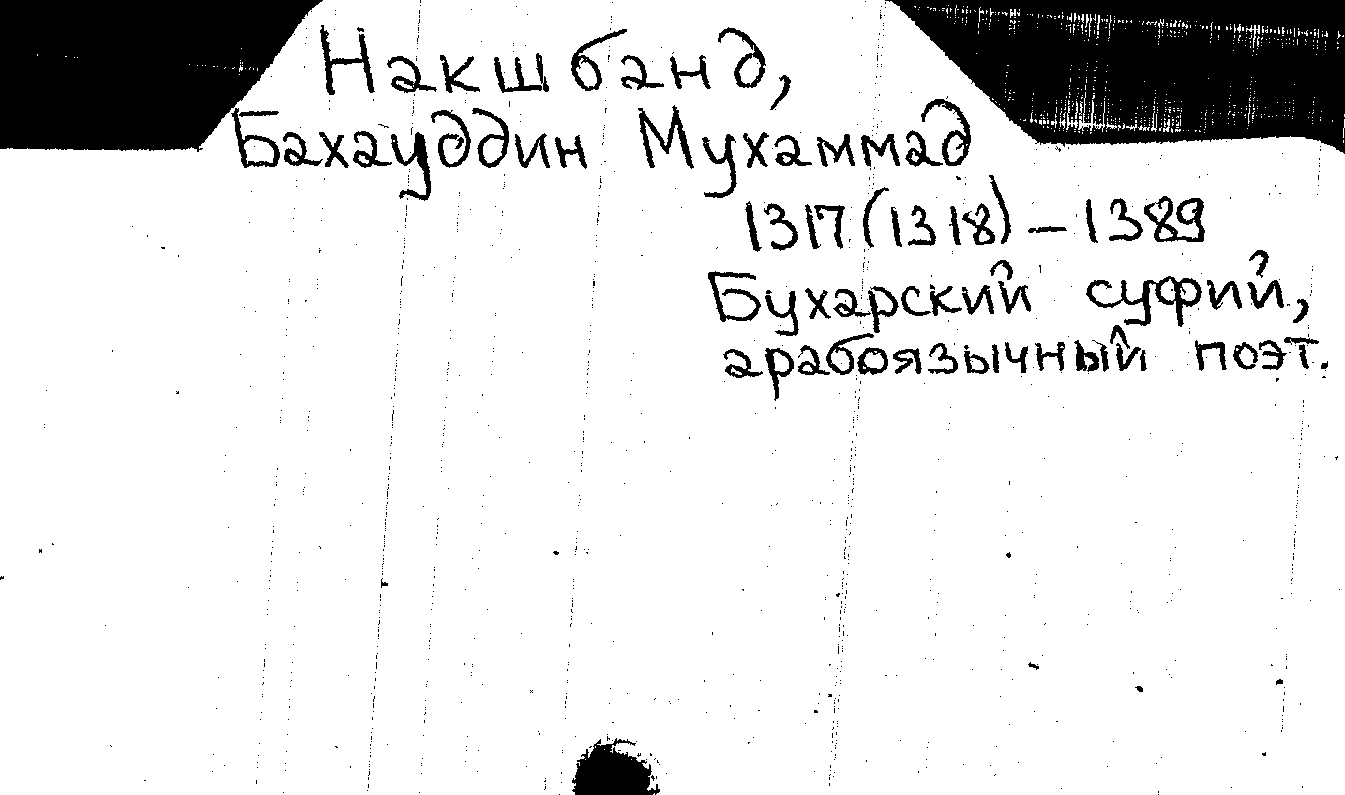 Накшбанд,
Бахауддин Мухаммад
1317(1318) – 1389
Бухарский суфий,
арабоязычный поэт.